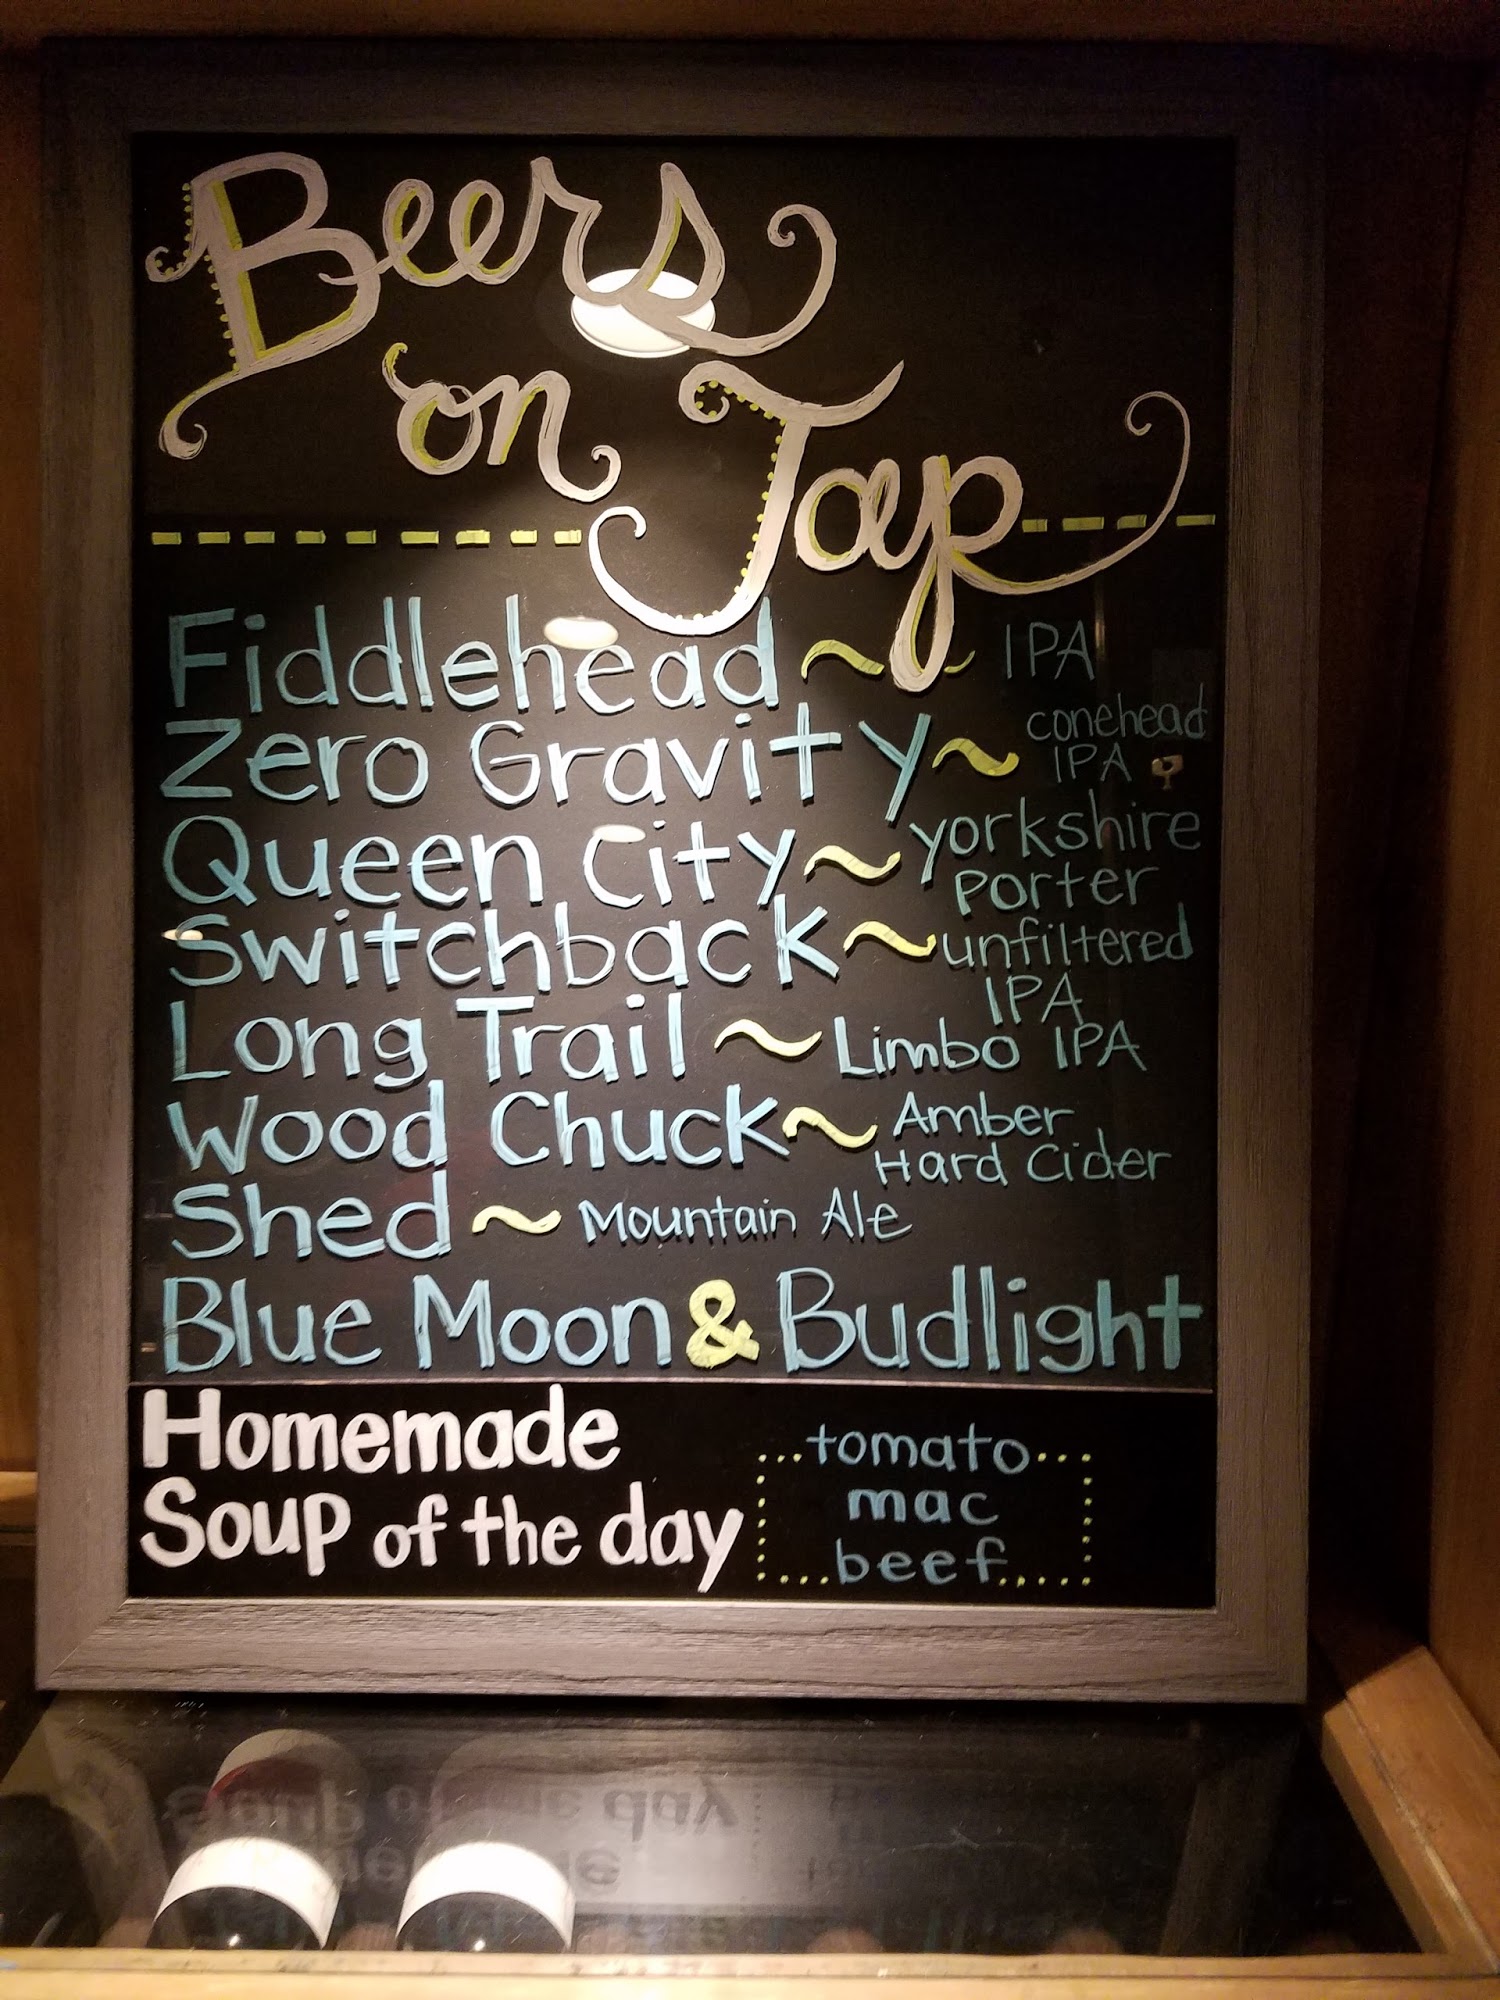 Beers
on Tap
Fiddlehead ~ IPA
Zero Gravity ~ conehead
IPA
Queen City ~ yorkshire
porter
Switchback ~ unfiltered
IPA
Long Trail ~ Limbo IPA
Wood Chuck ~ Amber
Hard Cider
Shed ~ Mountain Ale
Blue Moon & Budlight
Homemade
Soup of the day
tomato
mac
beef